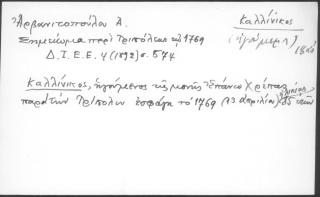 Ἀρβανιτοπούλου Α.
Σημείωμα περὶ Τριπόλεως τῷ 1769
Δ.Ι.Ε.Ε. 4 (1892) σ. 574
Καλλίνικος
(ἡγούμεν.)
Καλλίνικος, ἡγούμενος τῆς μονῆς Ἐπάνω Χρέπας
παρὰ τὴν Τρίπολιν ἐσφάγη τὸ 1769 (13 ἀπριλίου) ἐτῶν